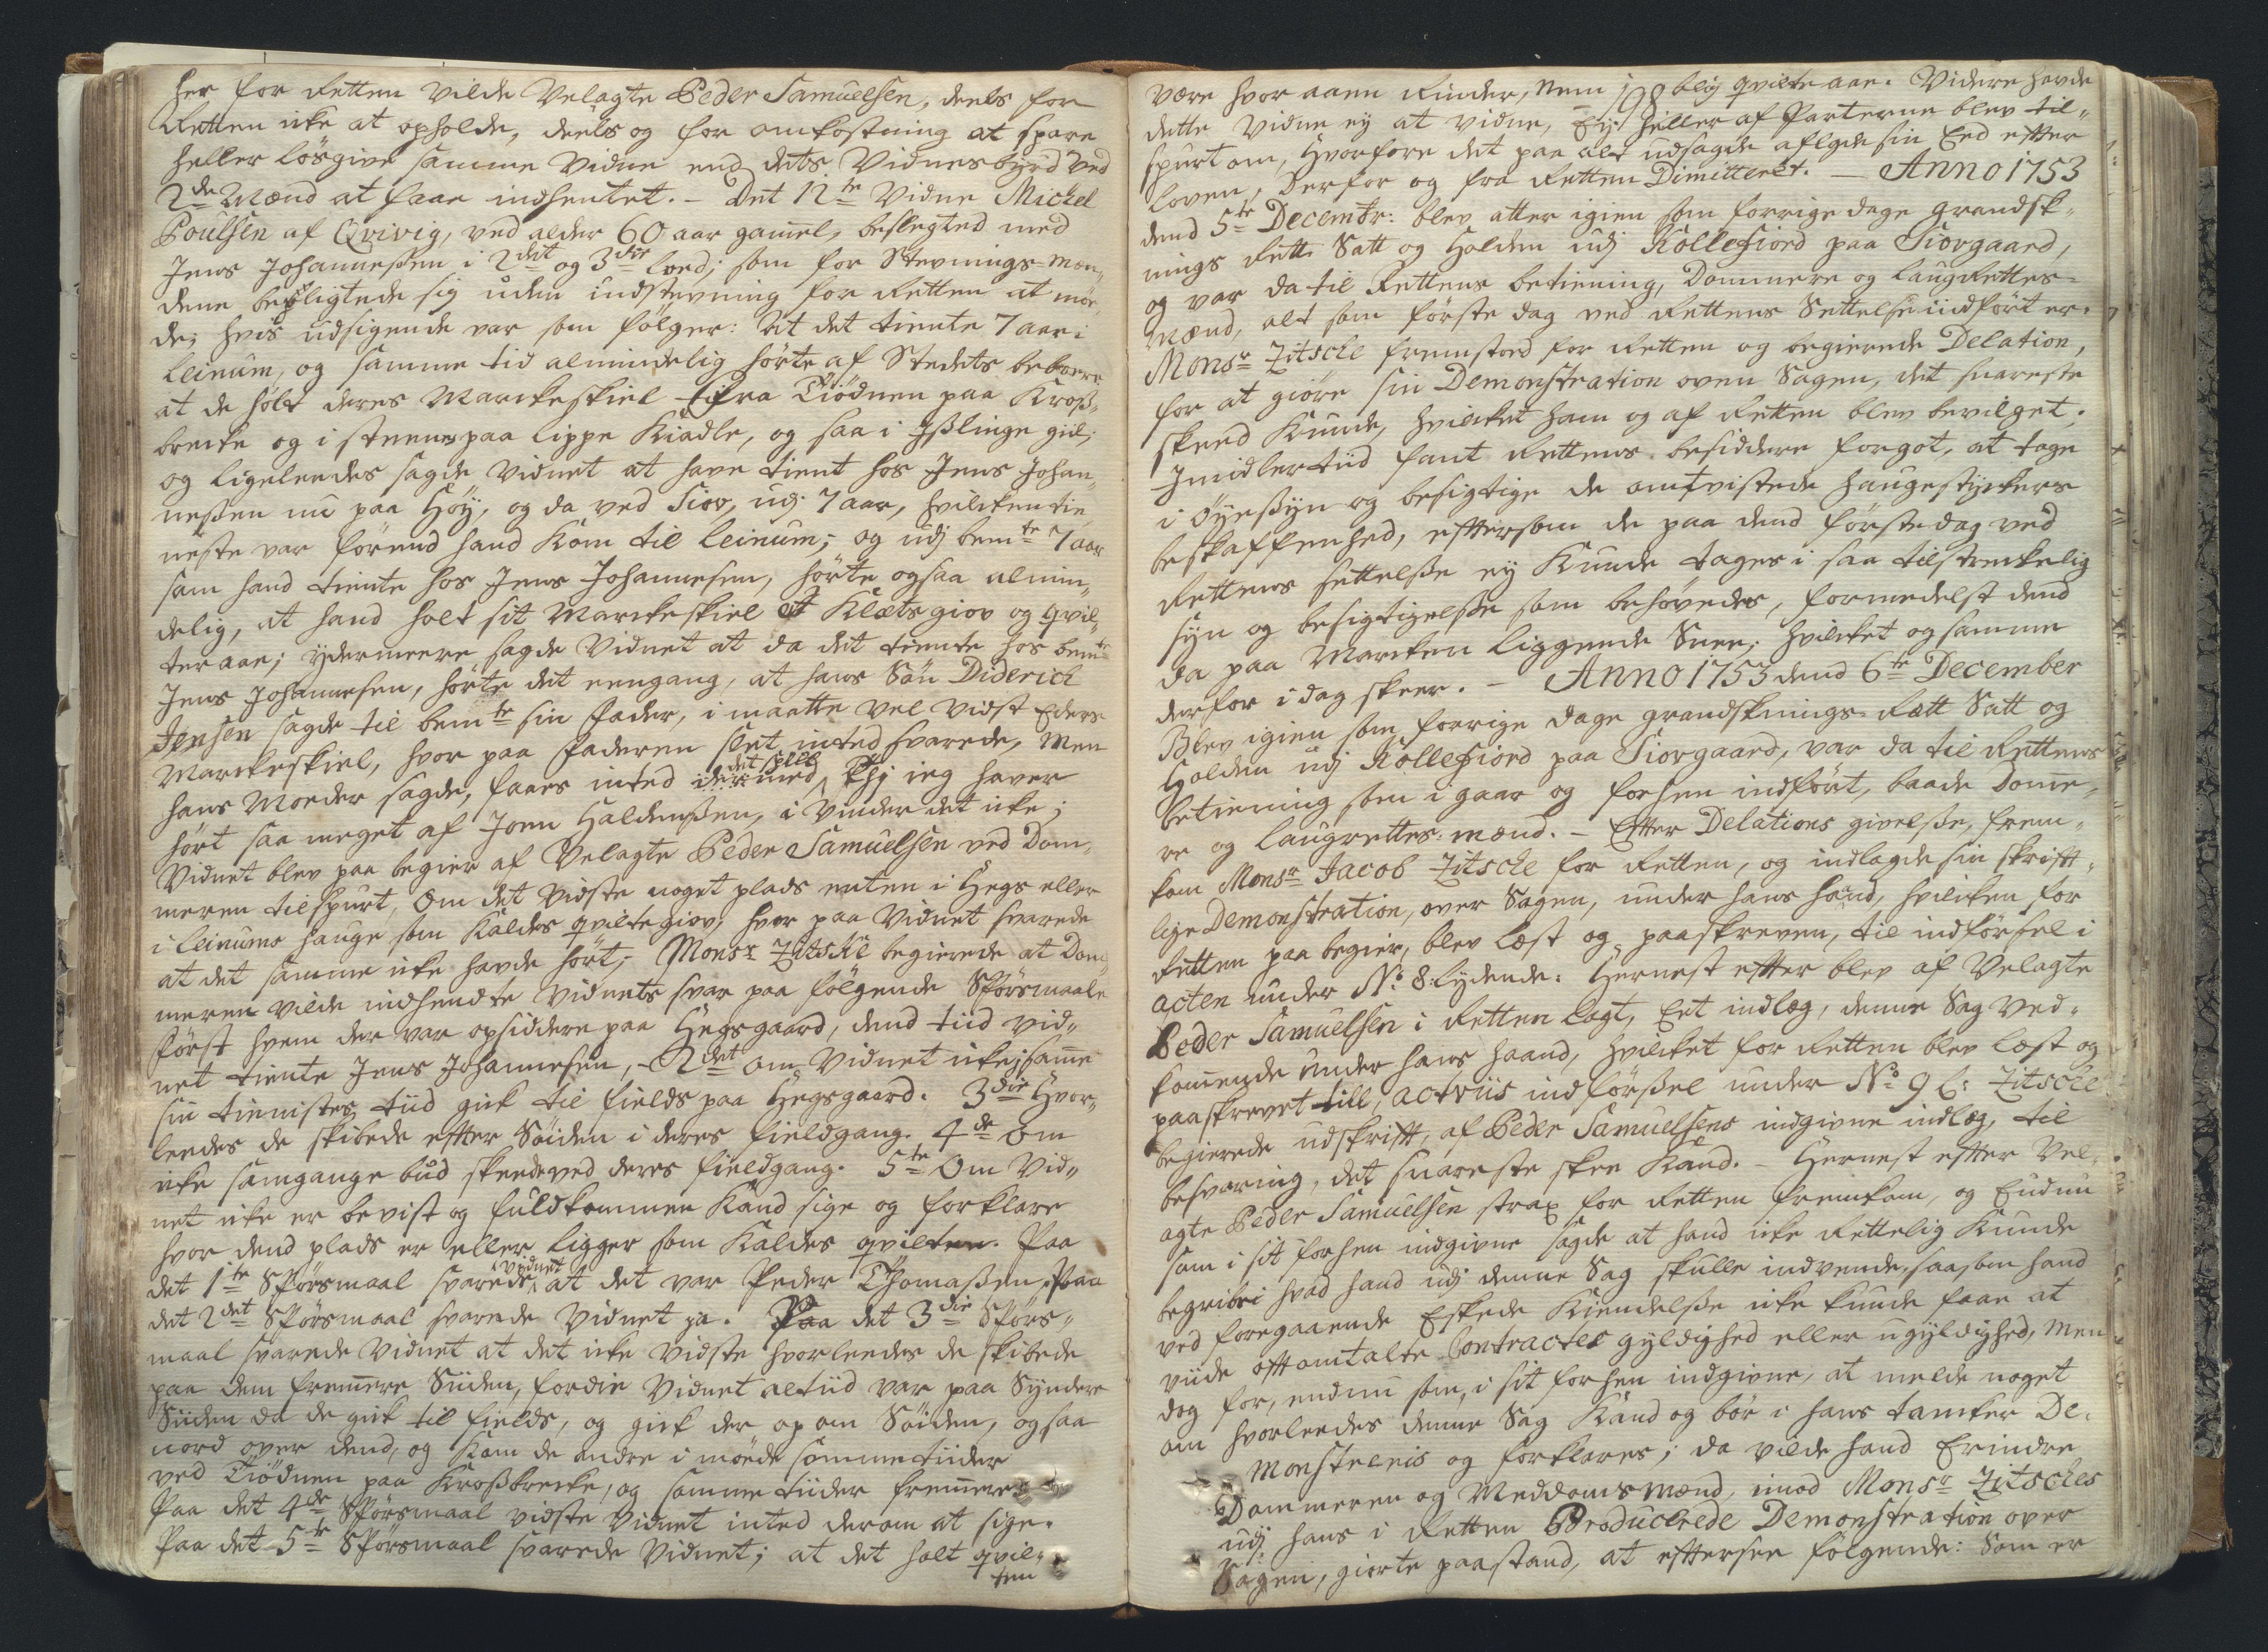 her for Retten vilde Velagte Peder Samuelsen, deels for
Retten icke at opholde, deels og for omkostning at spare
heller løsgive samme Vidne end dets Vidnesbyrd ved
2de Mænd at faae indhentet. – Det 12te Vidne Michel
Poulsen af Qvivig, ved alder 60 aar gam̄el, beslegted med
Jens Johannesßen i 2det og 3die leed; som for Stevnings-Mæn„
dene bepligtede sig uden indstevning for Retten at mø„
de; hvis udsigende var som følger: At det tiente 7 aar i
Leinum, og samme tid almindelig hørte af Stedets beboere
at de holt deres Marckeskiel fra Tiødnen paa Kroß„
brecke og i steenen paa Lippe Kiadle, og saa i Ißlinge gil;
og ligeleedes sagde Vidnet at have tient hos Jens Johan„
neßen nu paa Høÿ, og da ved Siov, udj 7 aar, hvilcken tie„
neste var førend hand kom til Leinum; og udj bemte 7 aar
som hand tiente hos Jens Johannesen, hørte ogsaa almin„
delig, at hand holt sit Marckeskiel at Klætsgiov og qvil„
ter aae; ÿdermeere sagde Vidnet at da det tiente hos bemte
Jens Johannesen, hørte det eengang, at hans Søn Diderich
Jensen sagde til bemte sin Fader, i maatte vel vidst Eders
Marckeskiel, hvor paa Faderen slet inted svarede, Men
hans Moeder sagde, faaer inted der med det selv, thj jeg haver
hørt saa meget af Joen Haldenßen, i vinder det icke;
Vidnet blev paa begier af Velagte Peder Samuelsen ved Dom„
meren tilspurt, Om det vidste noget plads enten i Hegs eller
i Leinums hauge som kaldes qviltegiov, hvor paa Vidnet svarede
at det samme icke havde hørt; Monsr Zitsche begierede at Dom„
meren vilde indhendte Vidnets svar paa følgende Spørsmaale
Først hvem der var opsiddere paa Hegsgaard, dend tiid vid„
net tiente Jens Johannesen, – 2det om Vidnet icke i sam̄e
sin tienistes tiid gick til fields paa Hegsgaard. 3die Hvor„
leedes de skibede efter Søiden i deres fieldgang. 4de Om
icke samgange bud skeede ved deres fieldgang. 5te Om Vid„
net icke er bevist og fuldkommen kand sige og forklare
hvor dend plads er eller ligger som kaldes qvilten. Paa
det 1te Spørsmaal svarede vidnet at det var Peder Thomaßen. Paa
det 2det Spørsmaal svarede Vidnet ja. Paa det 3die Spørs„
maal svarede Vidnet at det icke vidste hvorleedes de skibede
paa dem frem̄ere Siiden, fordie Vidnet altiid var paa Sÿndere
Siiden da de gick til fields, og gick der op om Søiden, og saa
nord over dend, og kom de andre i møde sommetiider
ved Tiødnen paa Kroßbrecke, og sommetiider frem̄ere.
Paa det 4de Spørsmaal vidste Vidnet inted derom at sige.
Paa det 5te Spørsmaal svarede Vidnet; at det holt qvil„
ten
være hvor aaen Rinder, nem̄ blij qvilte aae. Videre havde
198
dette Vidne eÿ at vidne, Eÿ heller af Parterne blev til„
spurt om, Hvorfore det paa alt udsagde aflagde sin Eed efter
Loven, derfor og fra Retten Dimitteret. – Anno 1753
dend 5te Decembr: blev atter igien som forrige dage grandsk„
nings Rett Satt og Holden udj Kollefiord paa Siovgaard,
og var da til Rettens betiening, Dommere og Laugrettes-
Mænd, alt som første dag ved Rettens Settelse indført er.
Monsr Zitsche fremstoed for Retten og begierede Delation,
for at giøre sin Demonstration over Sagen, det snareste
skeed kunde, hvilcket ham og af Retten blev bevilget.
Imidlertiid fant Rettens besiddere forgot, at tage
i øÿeßÿn og besigtige de omtvistede haugestÿckers
beskaffenhed, eftersom de paa dend første dag ved
Rettens settelße eÿ kunde tages i saa tilstreckelig
sÿn og besigtigelße som behøvedes, formedelst dend
da paa Marcken liggende Snee, hvilcket og samme
derfor i dag skeer. – Anno 1753 dend 6te December
Blev igien som forrige dage grandsknings-Rett Satt og
Holden udj Kollefiord paa Siovgaard, var da til Rettens
betiening som i gaar og forhen indført, baade Dom̄e„
re og Laugrettes-mænd. – Efter Delations givelße, frem„
kom Monsr Jacob Zitsche for Retten, og indlagde sin skrift„
lige Demonstration, over Sagen, under hans haand, hvilcken for
Retten paa begier, blev læst og paaskreven, til indførsel i
acten under No: 8: lÿdende: Hernest efter blev af Velagte
Peder Samuelsen i Retten lagt, Eet indlæg, denne Sag ved„
kom̄ende under hans haand, hvilcket for Retten blev læst og
paaskrevet till, actens indførßel under No 9 l: Zitsche
begierede udskrifft, af Peder Samuelsens indgivne indlæg, til
besvaring, det snareste skee kand. – Hernest efter Vel„
agte Peder Samuelsen strax for Retten fremkom, og Endnu
som i sit forhen indgivne sagde at hand icke Rettelig kunde
begribe hvad hand udj denne Sag skulle indvende, saasom hand
ved foregaaende Eskede Kiendelße icke kunde faae at
viide offtomtalte Contractes gÿldighed eller ugÿldighed, Men
dog for, endnu som, i sit forhen indgivne, at melde noget
om hvorleedes denne Sag kand og bør i hans tancker De„
monstreris og forklares; da vilde hand Erindre
Dommeren og Meddomsmænd, imod Monsr Zitsches
udj hans i Retten Producerede Demonstration over
Sagen, giorte paastand, at eftersee følgende: Som er